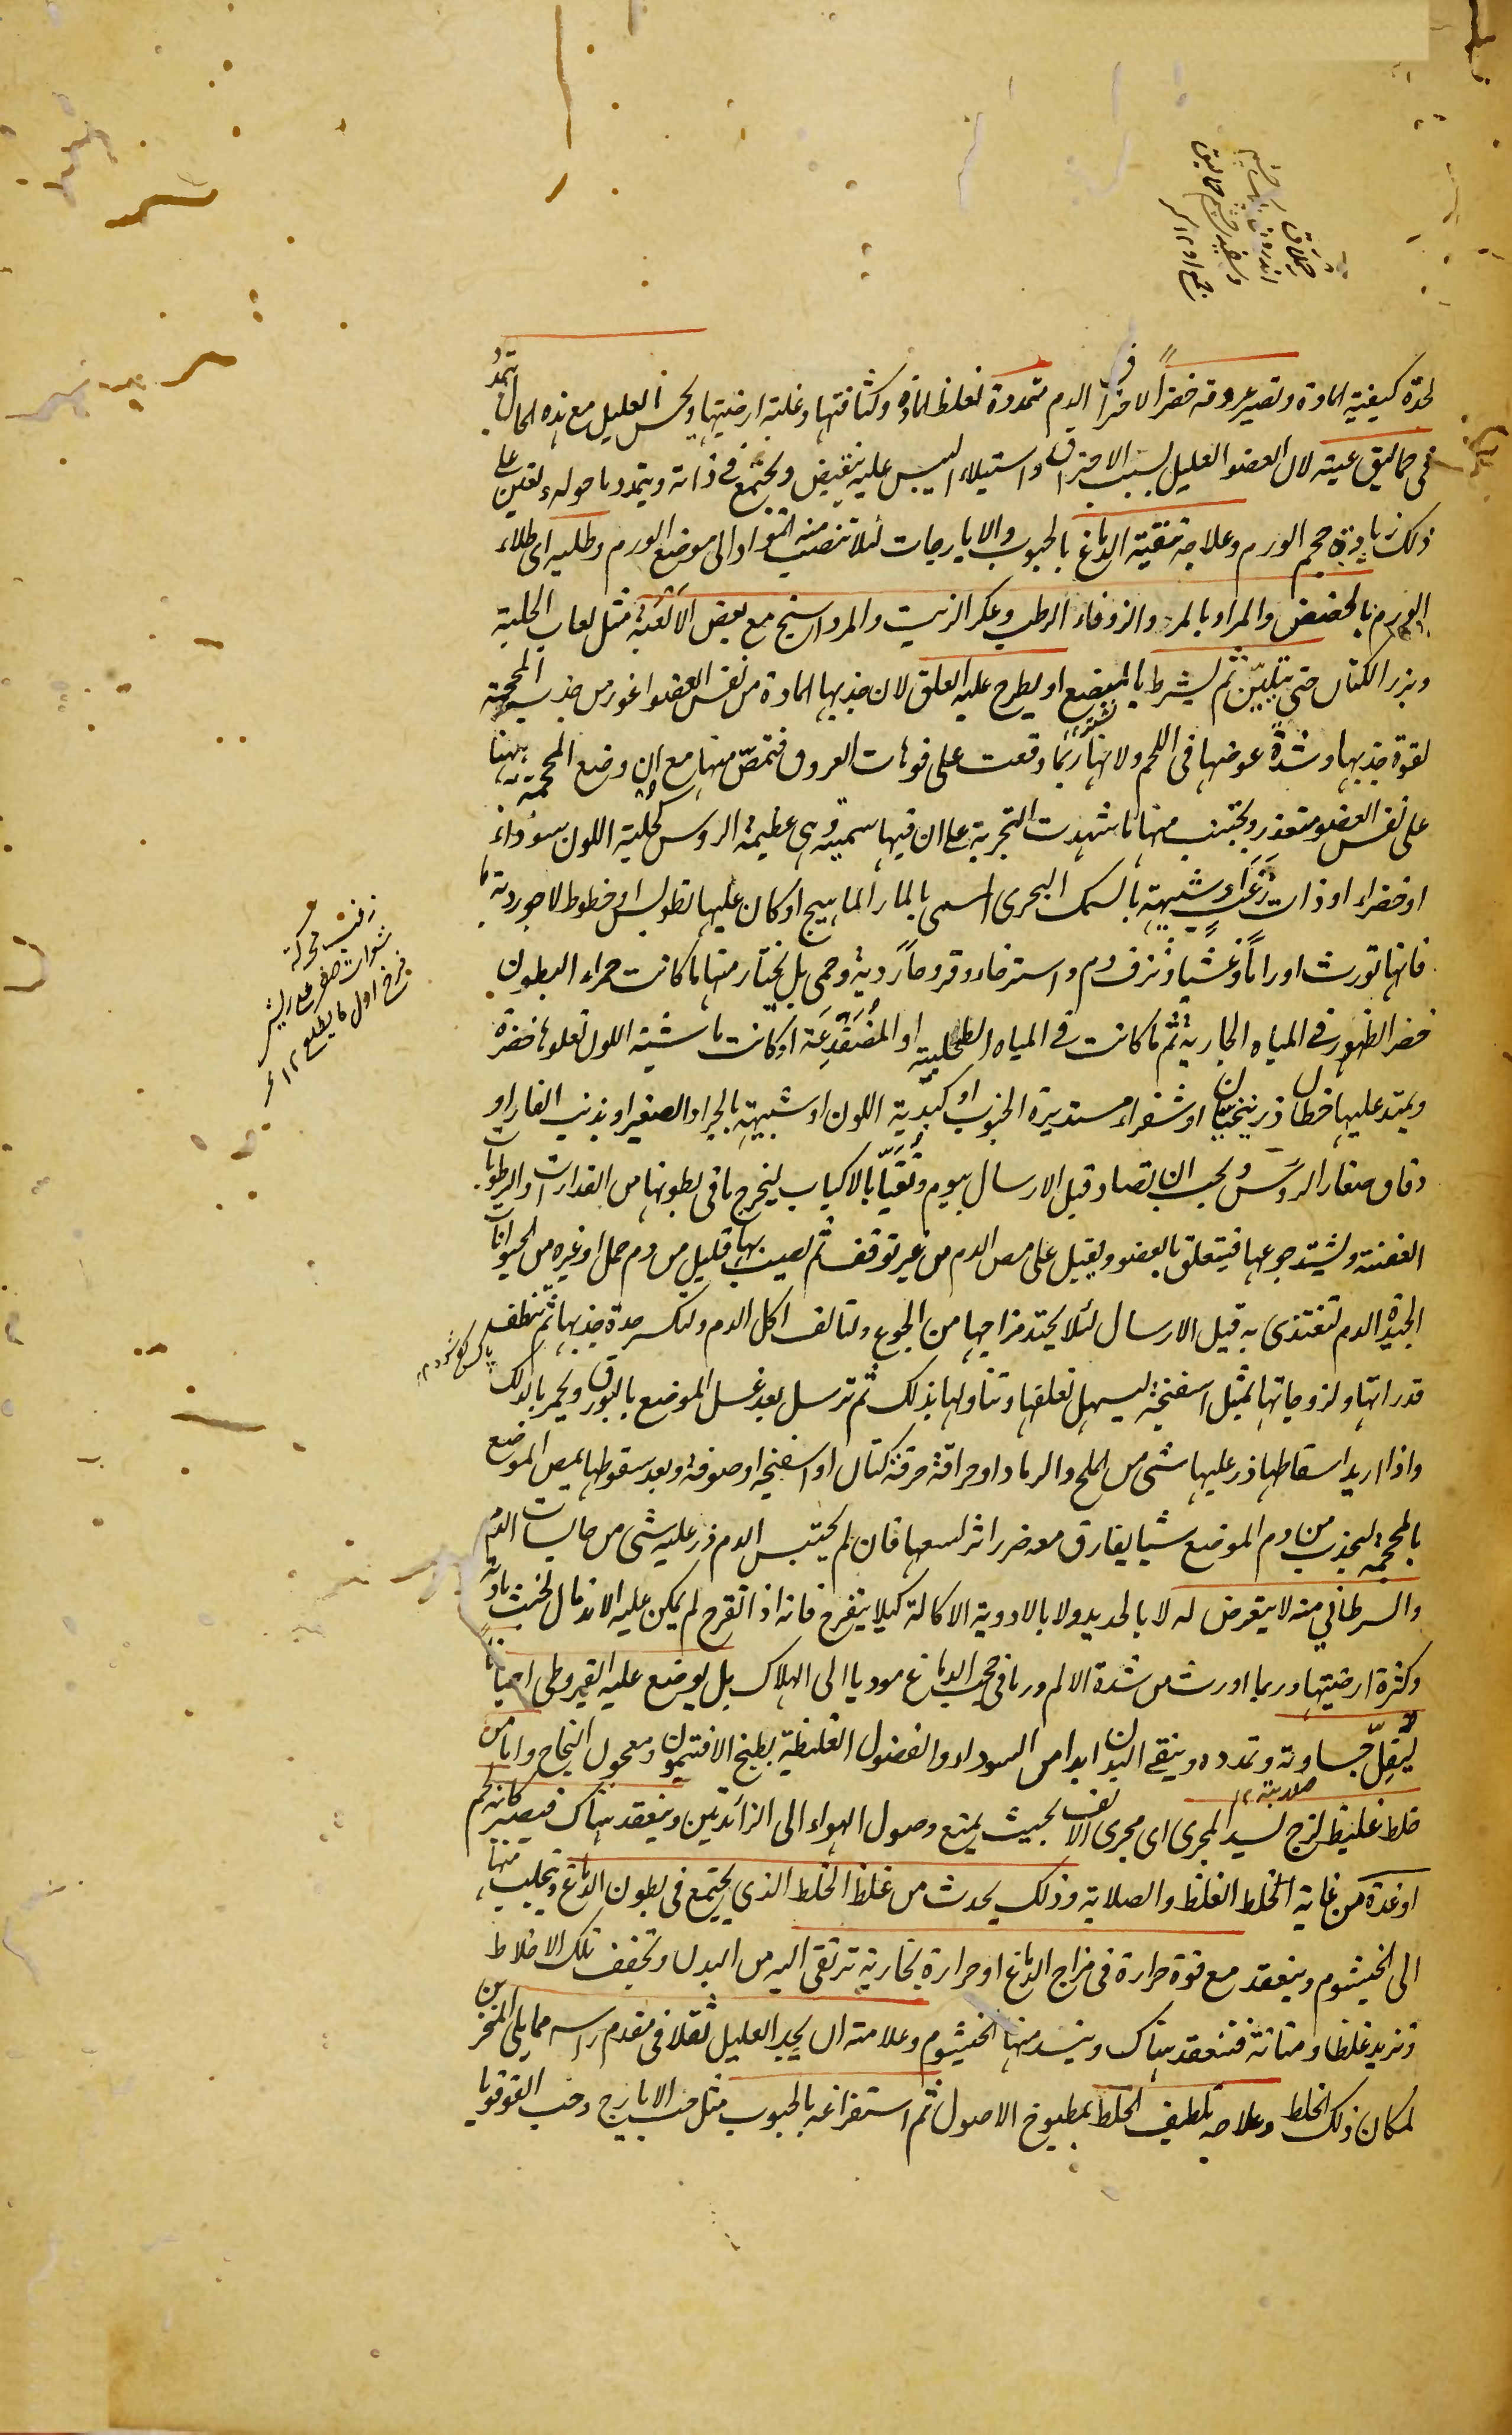 حملاق
اندرون پلک چشم
وسفیدی چشم حمالیق
جمع ١٢ م
لحدة كيفية المادة وتصير عروقه خضرا لاحتراق الدم متمددة لغلظ المادة وكثافتها وغلبة ارضيتها ويحس العليل مع هذه الحال بتمدد
فى حماليق عينه لان العضو العليل بسبب الاحتراق واستيلاء اليبس عليه ينقبض ويجتمع فى ذاته ويتمدد ما حوله ويعين على
ذلك زيادة حجم الورم وعلاجه تنقية الدماغ بالحبوب والايارجات لئلا تنصب منه المواد الى موضع الورم وطليه اى طلاء
الورم بالحضض والمراو بالمر والزوفاء الرطب وعكر الزيت والمرداسنج مع بعض الالعبة مثل لعاب الحلبة
وبزر الكتان حتى يتليّن ثم يشرط بالمبضع او يطرح عليه العلق لان جذبها المادة من نفس العضو اغور من جذب المحجمة
نشتر
لقوة جذبها وشدة غوصها فى اللحم ولانها ربما وقعت على فوهات العروق فتمصّ منها مع ان وضع المحجمة ههنا
على نفس العضو متعذر ويجتنب منها ما شهدت التجربة على ان فيها سمية وهى عظيمة الروس كحلية اللون سوداء
او خضراء او ذات زغب او شبيهة بالسمك البحرى المسمى بالمارماهيج او كان عليها تطويس او خطوط لاجوردية
فانها تورث اوراماً وغشيا ونزف دم واسترخاء وقروحاً ردية وحمى بل يختار منها ما كانت حمراء البطون
خضر الظهور فى المياه الجارية ثم ما كانت فى المياه الطحلبية او المضفدعة او كانت ماشية اللون تعلوها خضرة
ويمتد عليها خطان زرنيخيان او شقراء مستديرة الجنوب او كبدية اللون او شبيهة بالجراد الصغير او بذنب الفار او
دقاق صغار الروس ويجب ان تصاد قبل الارسال بيوم وتقيّأ بالاكباب ليخرج ما فى بطونها من القذارات والرطوبات
العفنة ويشتد جوعها فيتعلق بالعضو ويقبل على مص الدم من غير توقف ثم يصيب بها قليل من دم حمل او غيره من الحيوانات
الجيدة الدم لتغتذى به قبيل الارسال لئلا يحتد مزاجها من الجوع ولتالف اكل الدم ولتكسر حدة جذبها ثم تنظف
قدراتها ولزوجاتها بمثل اسفنجة ليسهل تعلقها وتناولها بذلك ثم ترسل بعد غسل الموضع بالبورق ويحمر بالدلك
واذا اريد اسقاطها ذر عليها شى من الملح والرماد او حراقة خرقة كتان او اسفنجة او صوفة وبعد سقوطها يمص الموضع
بالمحجمة ليجذب من دم الموضع شيا يفارق معه ضرر اثر لسعها فان لم يحتبس الدم ذر عليه شى من حابسات الدم
والسرطانى منه لا يتعرض له لا بالحديد ولا بالادوية الاكالة كيلا يتقرح فانه اذا تقرح لم يمكن عليه الاندمال لخبث مادته
وكثرة ارضيتها وربما اورث من شدة الالم ورما فى حجب الدماغ موديا الى الهلاك بل يوضع عليه القيروطى احيانا
ليقلّ جساوته وتمدده وينقى البدن ابدا من السوداء والفضول الغليظة بطبخ الافتيمون ومعجون النجاح واما من
صلابته ١٢
خلط غليظ لزج يسد المجرى اى مجرى الانف بحيث يمنع وصول الهواء الى الزائدتين وينعقد هناك فيصير كانه لحم
او غدة من غاية الخلط الغلظ والصلابة وذلك يحدث من غلظ الخلط الذى يجتمع فى بطون الدماغ ويتحلب منها
الى الخيشوم وينعقد مع قوة حرارة فى مزاج الدماغ او حرارة بخارية ترتقى اليه من البدن وتجفف تلك الاخلاط
وتزيد غلظا ومتانة فتنعقد هناك وينسد منها الخيشوم وعلامته ان يجد العليل ثقلا فى مقدم راسه مما يلى المنخرين
لمكان ذلك الخلط وعلاجه تلطيف الخلط بمطبوخ الاصول ثم استفراغه بالحبوب مثل حب الايارج وحب القوقويا
زغب محركة
اول ما يطلع ١٢